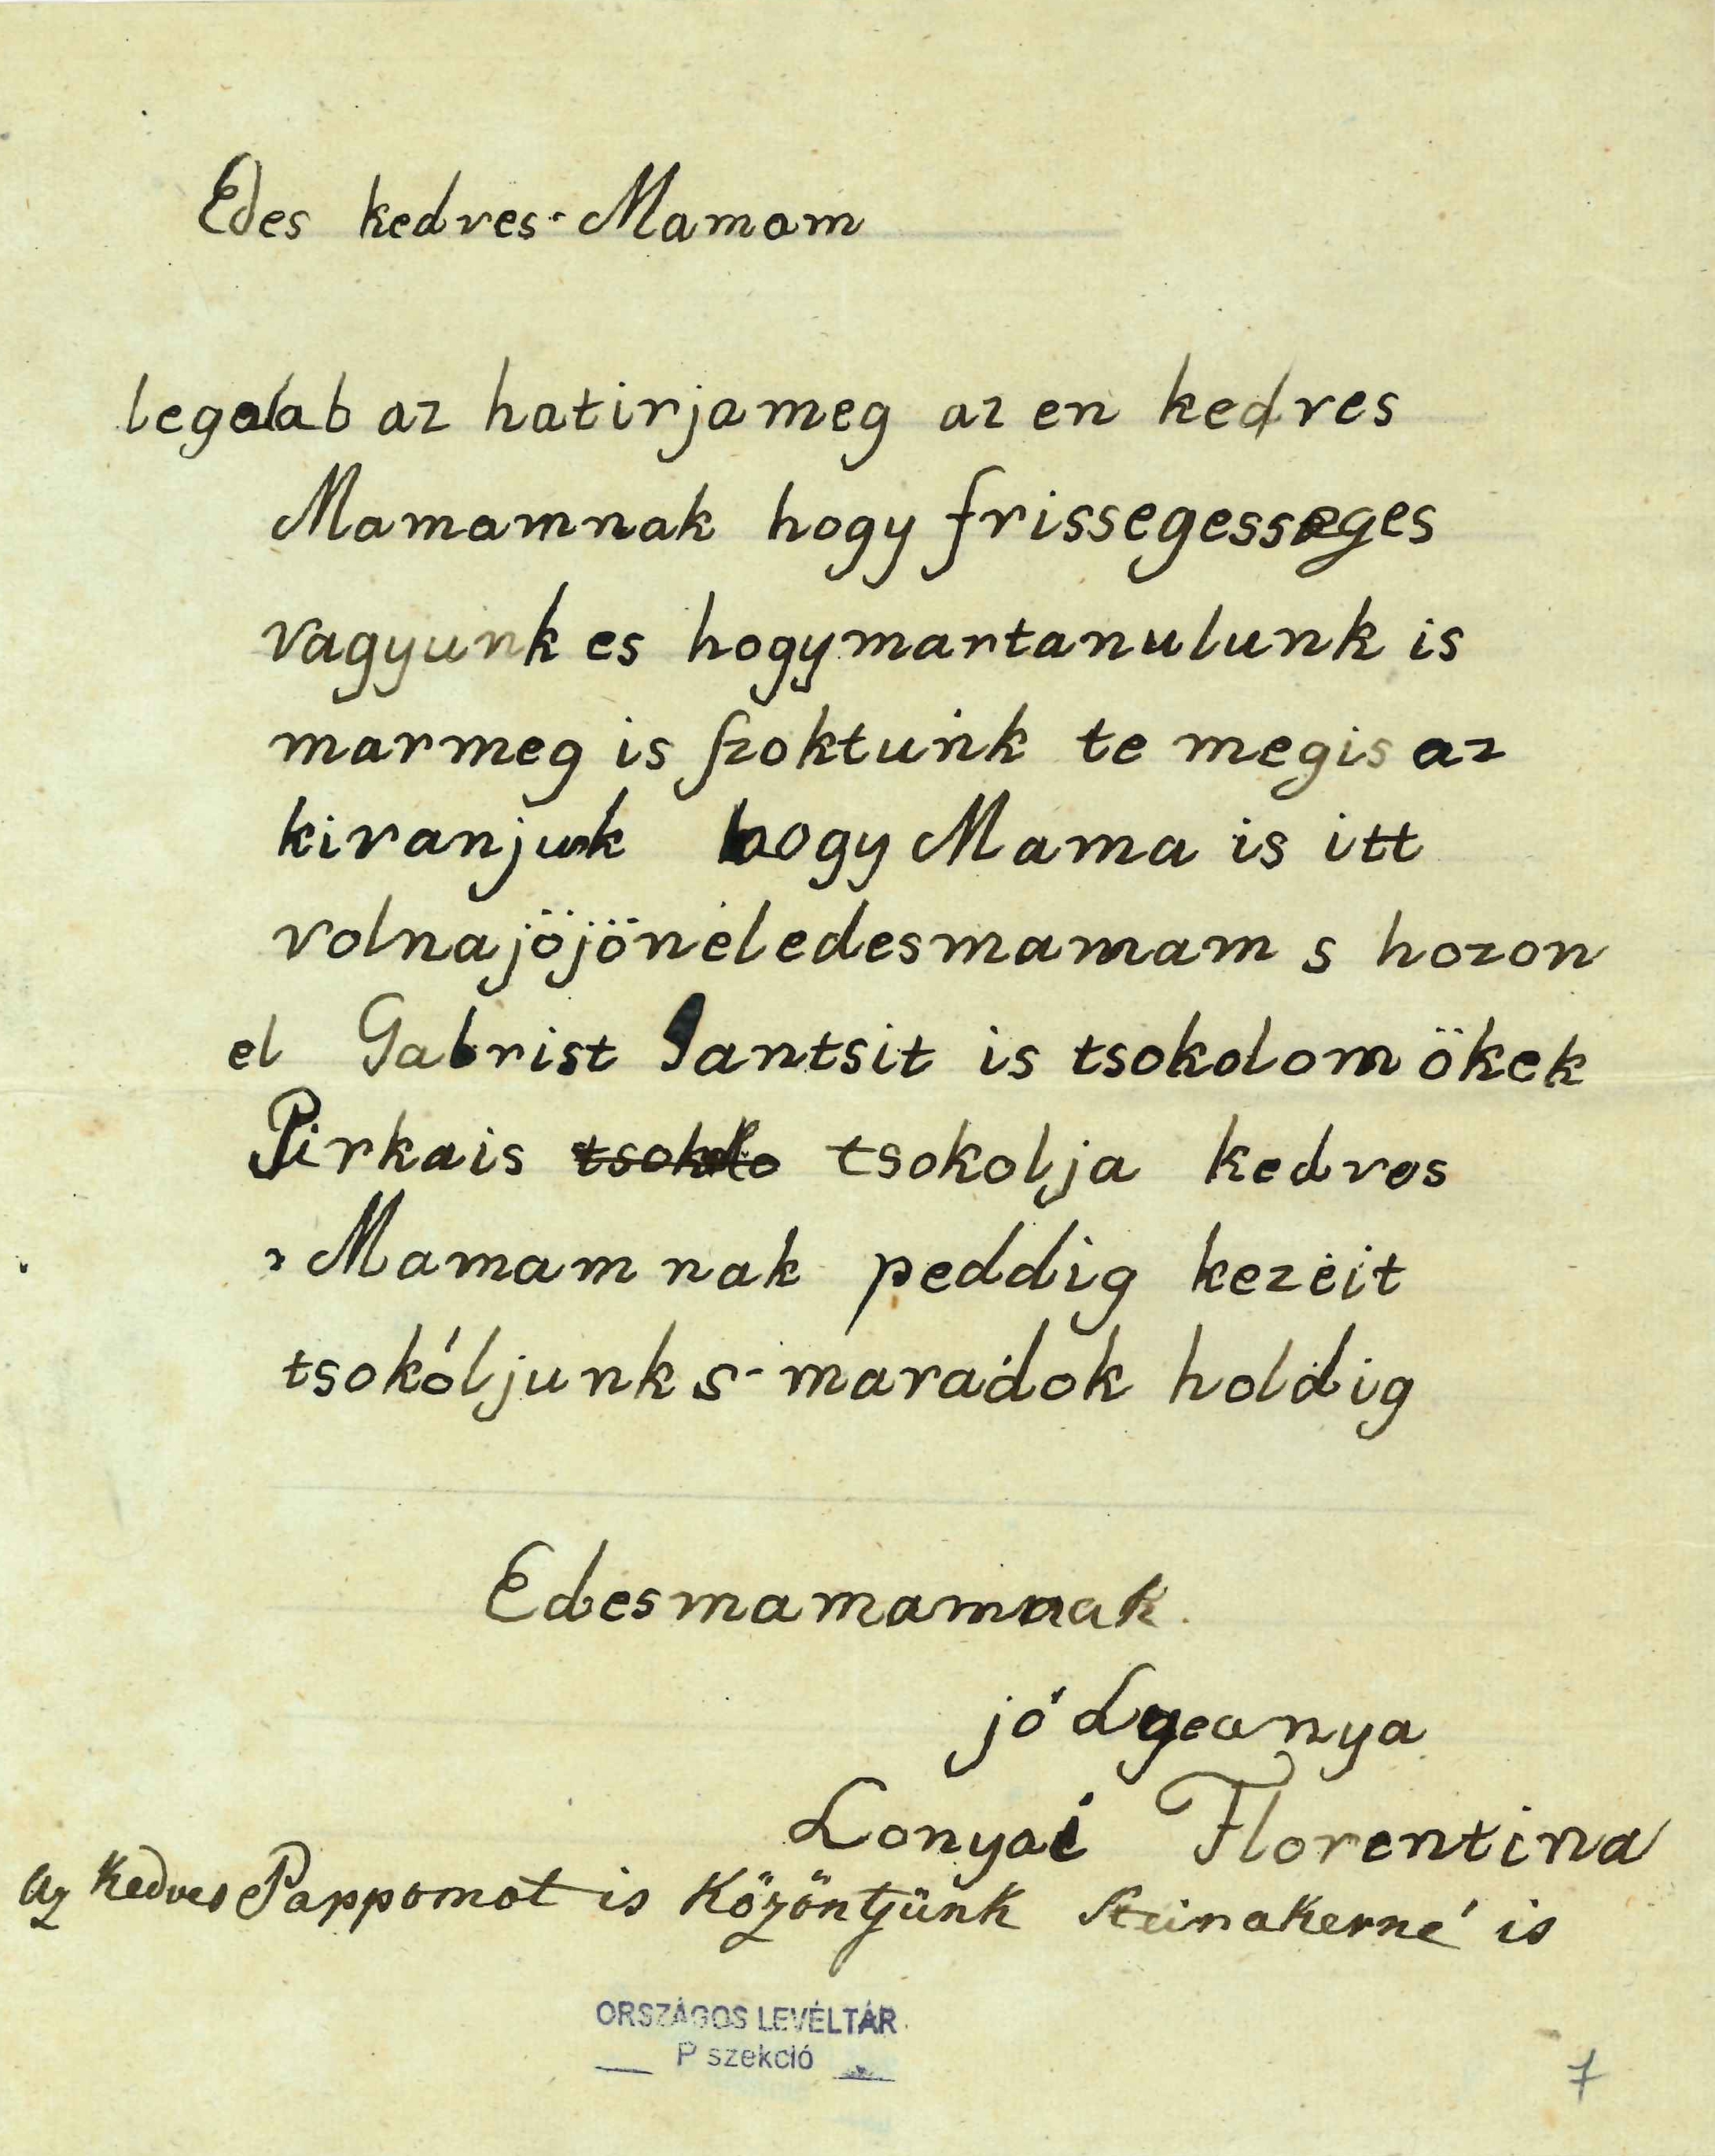 Edes kedves Mamam
legalab az hatirjameg az en kedves
Mamamnak hogy frissegesseges
vagyunk es hogymartanulunk is
marmeg is szoktunk te megis az
kivanjuk hogy Mama is itt
volnajöjöneledesmamam s hozon
el Gabrist Jantsit is tsokolom ökek
Pirkais tsokolja kedves
Mamamnak peddig kezeit
tsokóljunk s maradok holdig
Edesmamamnak
jó Lyeanya
Lonyai Florentina
az Kedves Pappomot is Közöntjünk Steinakerné is
ORSZÁGOS LEVÉLTÁR
P szekció
7